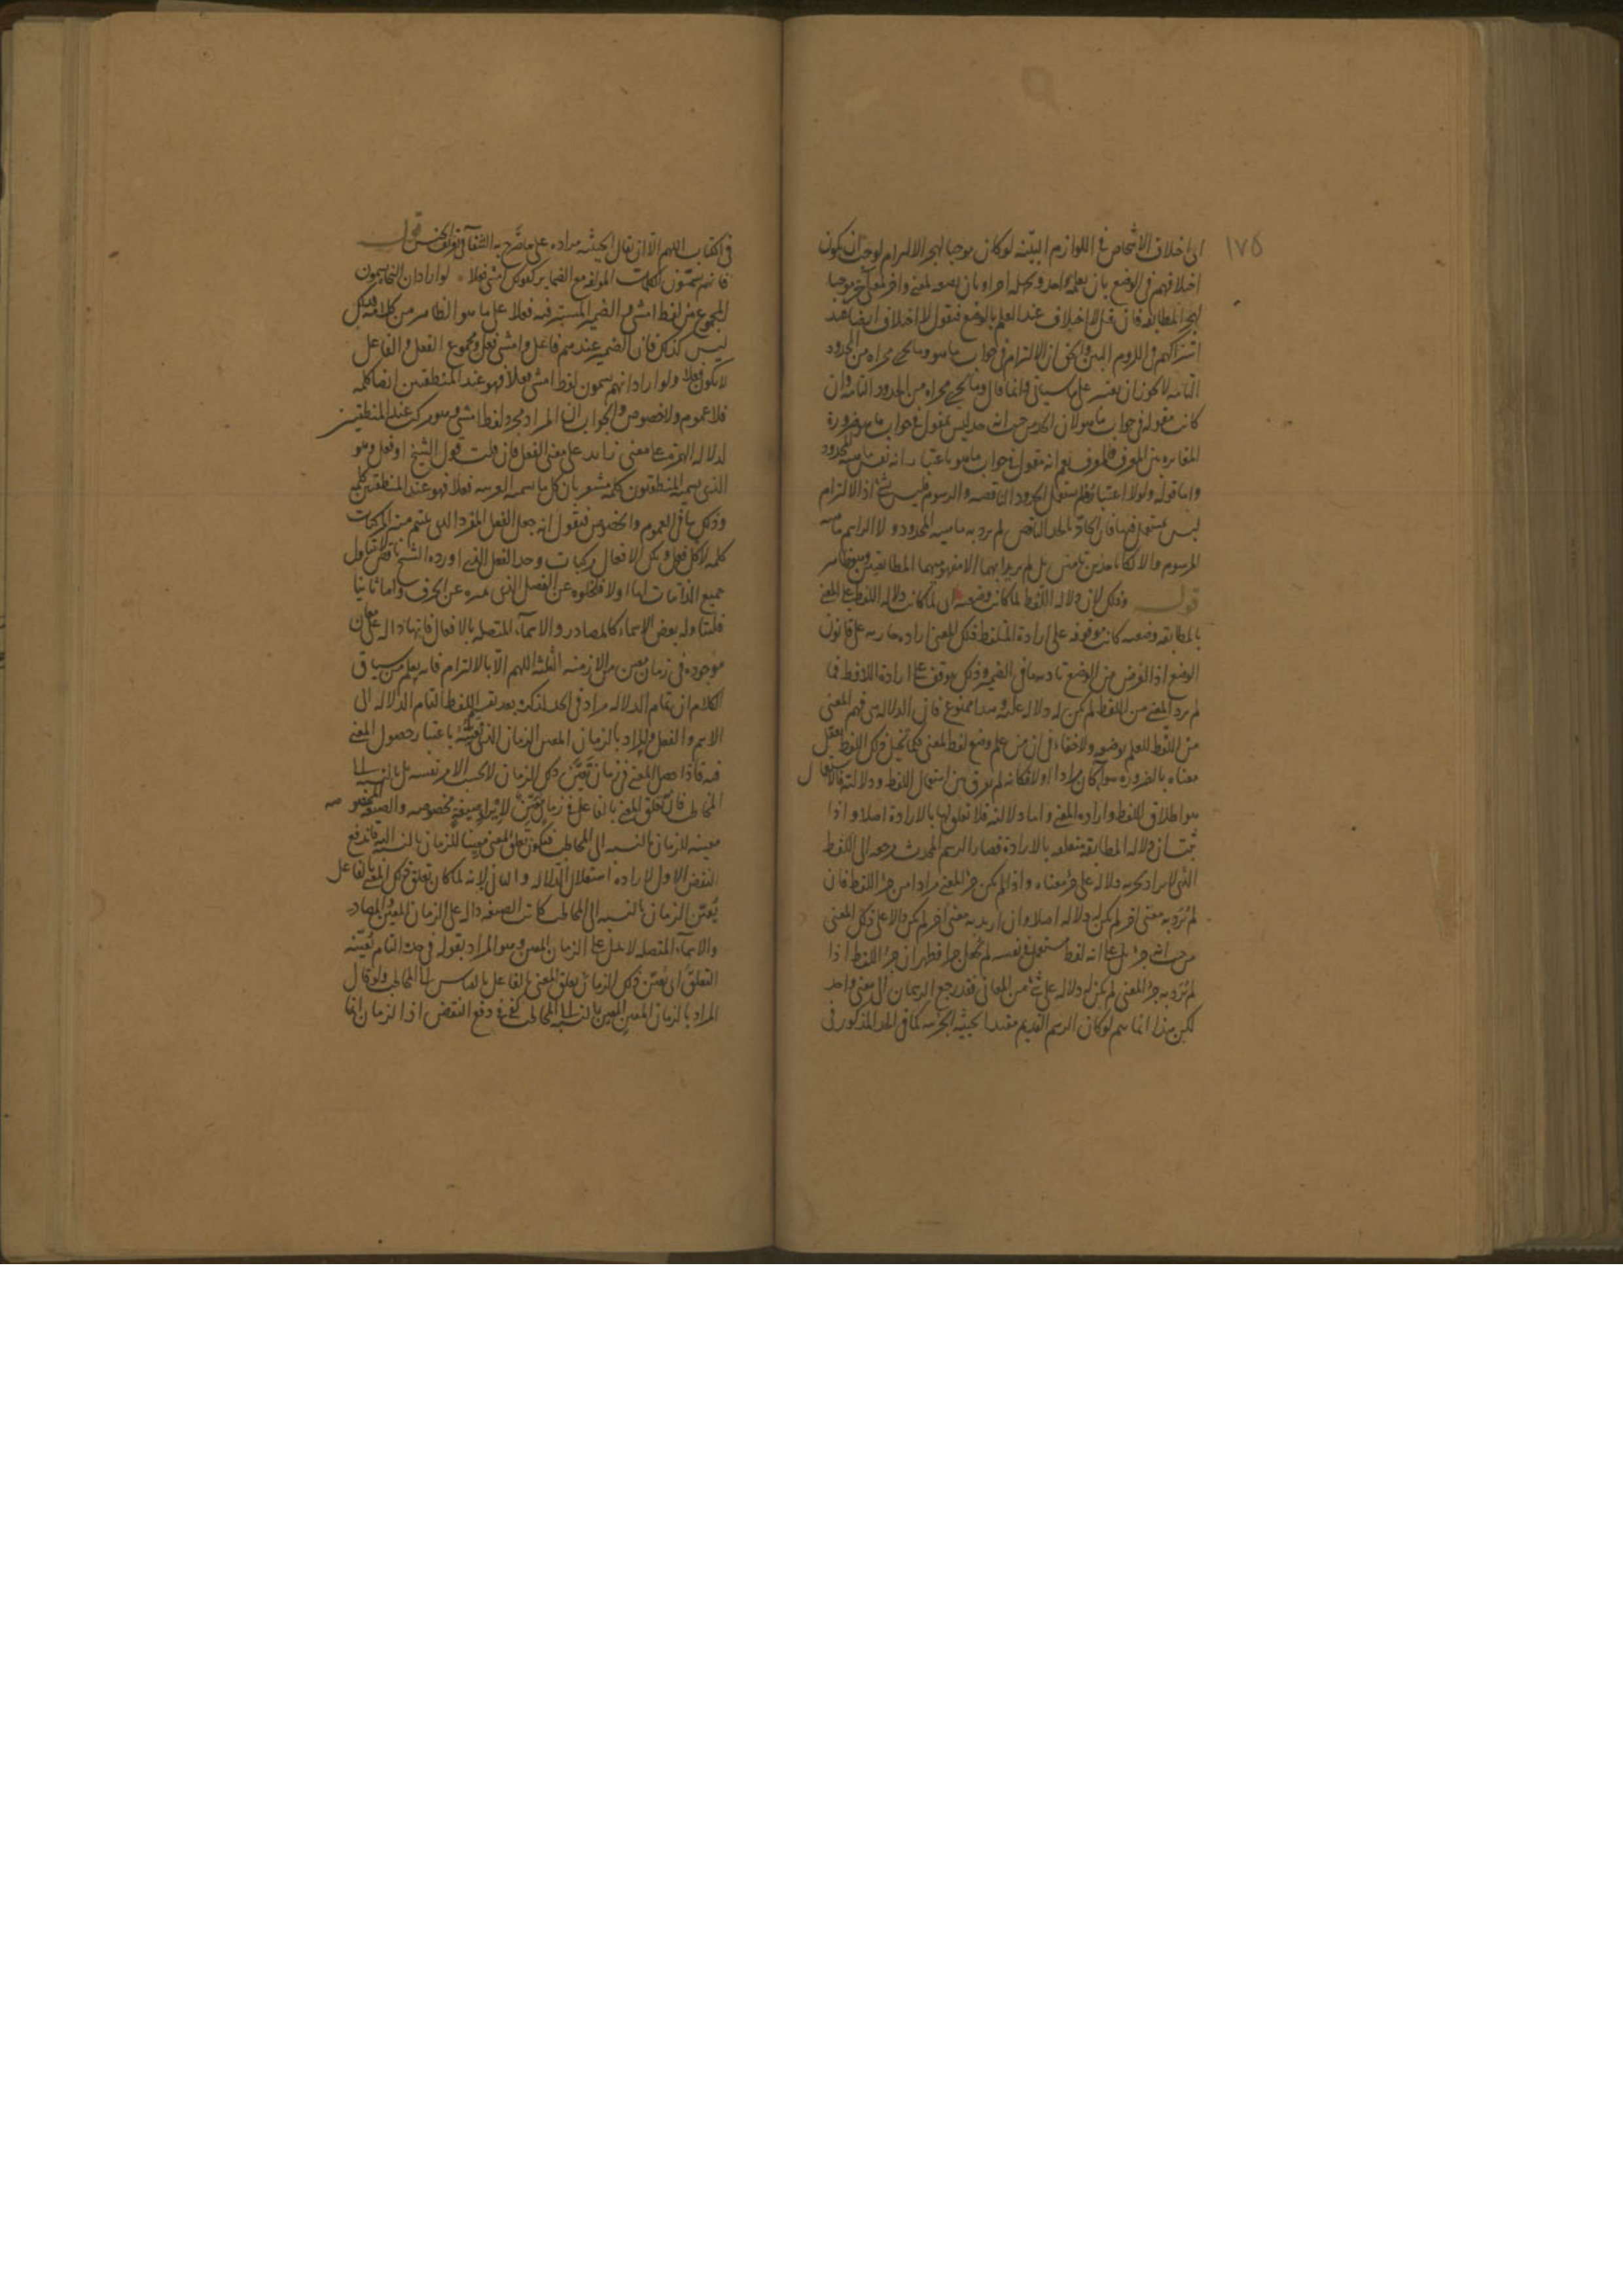 ١٧٥
ان اختلاف الاشخاص فى اللوازم البيّنه لو كان موجبا لهجر الالتزام لوجب ان يكون
اختلافهم فى الوضع بان يعلمه واحد ويجهله اخر او بان يضعه لمعنى واخر لمعنى اخر موجبا
لهجر المطابقه فان قيل لا اختلاف عند العلم بالوضع فنقول لا اختلاف ايضا عند
اشتراكهم فى اللزوم البين والحق ان الالتزام فى جواب ما هو وما يجرى مجراه من الحدود
التامه لا يجوز ان يعتبر على ما سياتى وانما قال وما يجرى مجراه من الحدود التامه وان
كانت مقوله فى جواب ما هو لان الحد من حيث انه حد ليس بمقول فى جواب ما هو ضرورة
المغايره بين المعرف والمعرف نعم انه مقول فى جواب ما هو باعتبار انه نفس ماهيه المحدود
واما قوله ولولا اعتباره لم يستعمل الحدود الناقصه والرسوم فليس بشئ اذ الالتزام
ليس بمستعمل فيها فان الحادّ بالحد الناقص لم يرد به ماهيه المحدود ولا الراسم ماهيه
المرسوم والا لكانا حدين تامين بل لم يريدا بهما الا مفهوميهما المطابقيين وهو ظاهر
قوله وذلك لان دلالة اللفظ لما كانت وضعيه اى لما كانت دلاله اللفظ على المعنى
بالمطابقه وضعيه كانت موقوفه على ارادة المتلفظ ذلك المعنى اراده جاريه على قانون
الوضع اذ الغرض من الوضع تاديه ما فى الضمير وذلك يتوقف على ارادة اللافظ فما
لم يرد المعنى من اللفظ لم يكن له دلاله عليه وهذا ممنوع فان الدلاله هى فهم المعنى
من اللفظ للعلم بوضعه ولا خفاء فى ان من علم وضع لفظ لمعنى فكما تخيل ذلك اللفظ يعقل
معناه بالضروره سواء كان مرادا او لا فكانه لم يفرق بين استعمال اللفظ ودلالته فالاستعمال
هو اطلاق اللفظ وارادة المعنى واما دلالته فلا تعلق لها بالارادة اصلا واذا
ثبت ان دلاله المطابقه متعلقه بالارادة فصار الرسم المحدث مرجعه الى اللفظ
الذى لا يراد بجزئه دلاله على جزء معناه واذا لم يكن جزء المعنى مرادا من جزء اللفظ فان
لم يُرَد به معنى اخر لم يكن له دلاله اصلا وان اريد به معنى اخر لم يكن دالا على ذلك المعنى
من حيث انه جزء بل على انه لفظ مستعمل فى نفسه لم يجعل جزءا فظهر ان جزء اللفظ اذا
لم يُرَد به جزء المعنى لم يكن له دلاله على شئ من المعانى فقد رجع الرسمان الى معنى واحد
لكن هذا انما يتم لو كان الرسم القديم مقيدا بحيثيه الجزئيه كما فى الحد المذكور فى
فى الكتاب اللهم الا ان يقال الحيثيه مراده على ما صرح به الشفآ فى تعريف الجنس قوله
فانهم يسمّون الكلمات المولفه مع الضماير كقولك امشى فعلا لو اراد ان النحاة يسمون
المجموع من لفظ امشى والضمير المستتر فيه فعلا على ما هو الظاهر من كلامه فليس
ليس كذلك فان الضمير عندهم فاعل وامشى فعل ومجموع الفعل والفاعل
لا يكون فعلا ولو اراد انهم يسمون لفظ امشى فعلا فهو عند المنطقيين ايضا كلمه
فلا عموم ولا خصوص والجواب ان المراد مجرد لفظ امشى وهو مركب عند المنطقيين
لدلاله الهمزه على معنى زايد على معنى الفعل فان قلت قول الشيخ او فعل وهو
الذى يسميه المنطقيون كلمه مشعر بان كل ما يسميه العربيه فعلا فهو عند المنطقيين كلمه
وذلك ينافى العموم والخصوص فنقول انه جعل الفعل المفرد الذى يلتئم منه المركبات
كلمه لا كل فعل وتلك الافعال مركبات وحد الفعل الذى اورده الشيخ ناقص لا يتناول
جميع الذاتيات اما اولا فلخلوه عن الفصل الذى يميزه عن الحرف واما ثانيا
فلتناوله بعض الاسماء كالمصادر والاسمآء المتصله بالافعال فانها داله على معان
موجوده فى زمان معين من الازمنه الثلثه اللهم الا بالالتزام فانه يعلم من سياق
الكلام ان تمام الدلاله مراد فى الحد لذكره بعد تقسيم اللفظ التام الدلاله الى
الاسم والفعل والمراد بالزمان المعين الزمان الذى تعيّنه باعتبار حصول المعنى
فيه فاذا حصل المعنى فى زمان تعيّن ذلك الزمان لا بحسب الامر نفسه بل بالنسبه الى
المخاطب فان تعلق المعنى بالفاعل فى زمان معيّن لايراد صيغةٍ مخصوصه والصيغه المخصوصه
معينه للزمان بالنسبه الى المخاطب فيكون تعلق المعنى معينا للزمان بالنسبه اليه فاندفع
النقض الاول لارادة استقلال الدلاله والثانى لانه لما كان تعلق ذلك المعنى بالفاعل
يُعيّن الزمان بالنسبه الى المخاطب كانت الصيغه داله على الزمان المعيّن والمصادر
والاسمآء المتصله لا تدل على الزمان المعين وهو المراد بقوله فى حد التام تُعيّنه
التعلق اى يُعيّن ذلك الزمان تعلق المعنى بالفاعل بالقياس الى المخاطب ولو قال
المراد بالزمان المعين المعين بالنسبه الى المخاطب كفى فى دفع النقض اذ الزمان انما